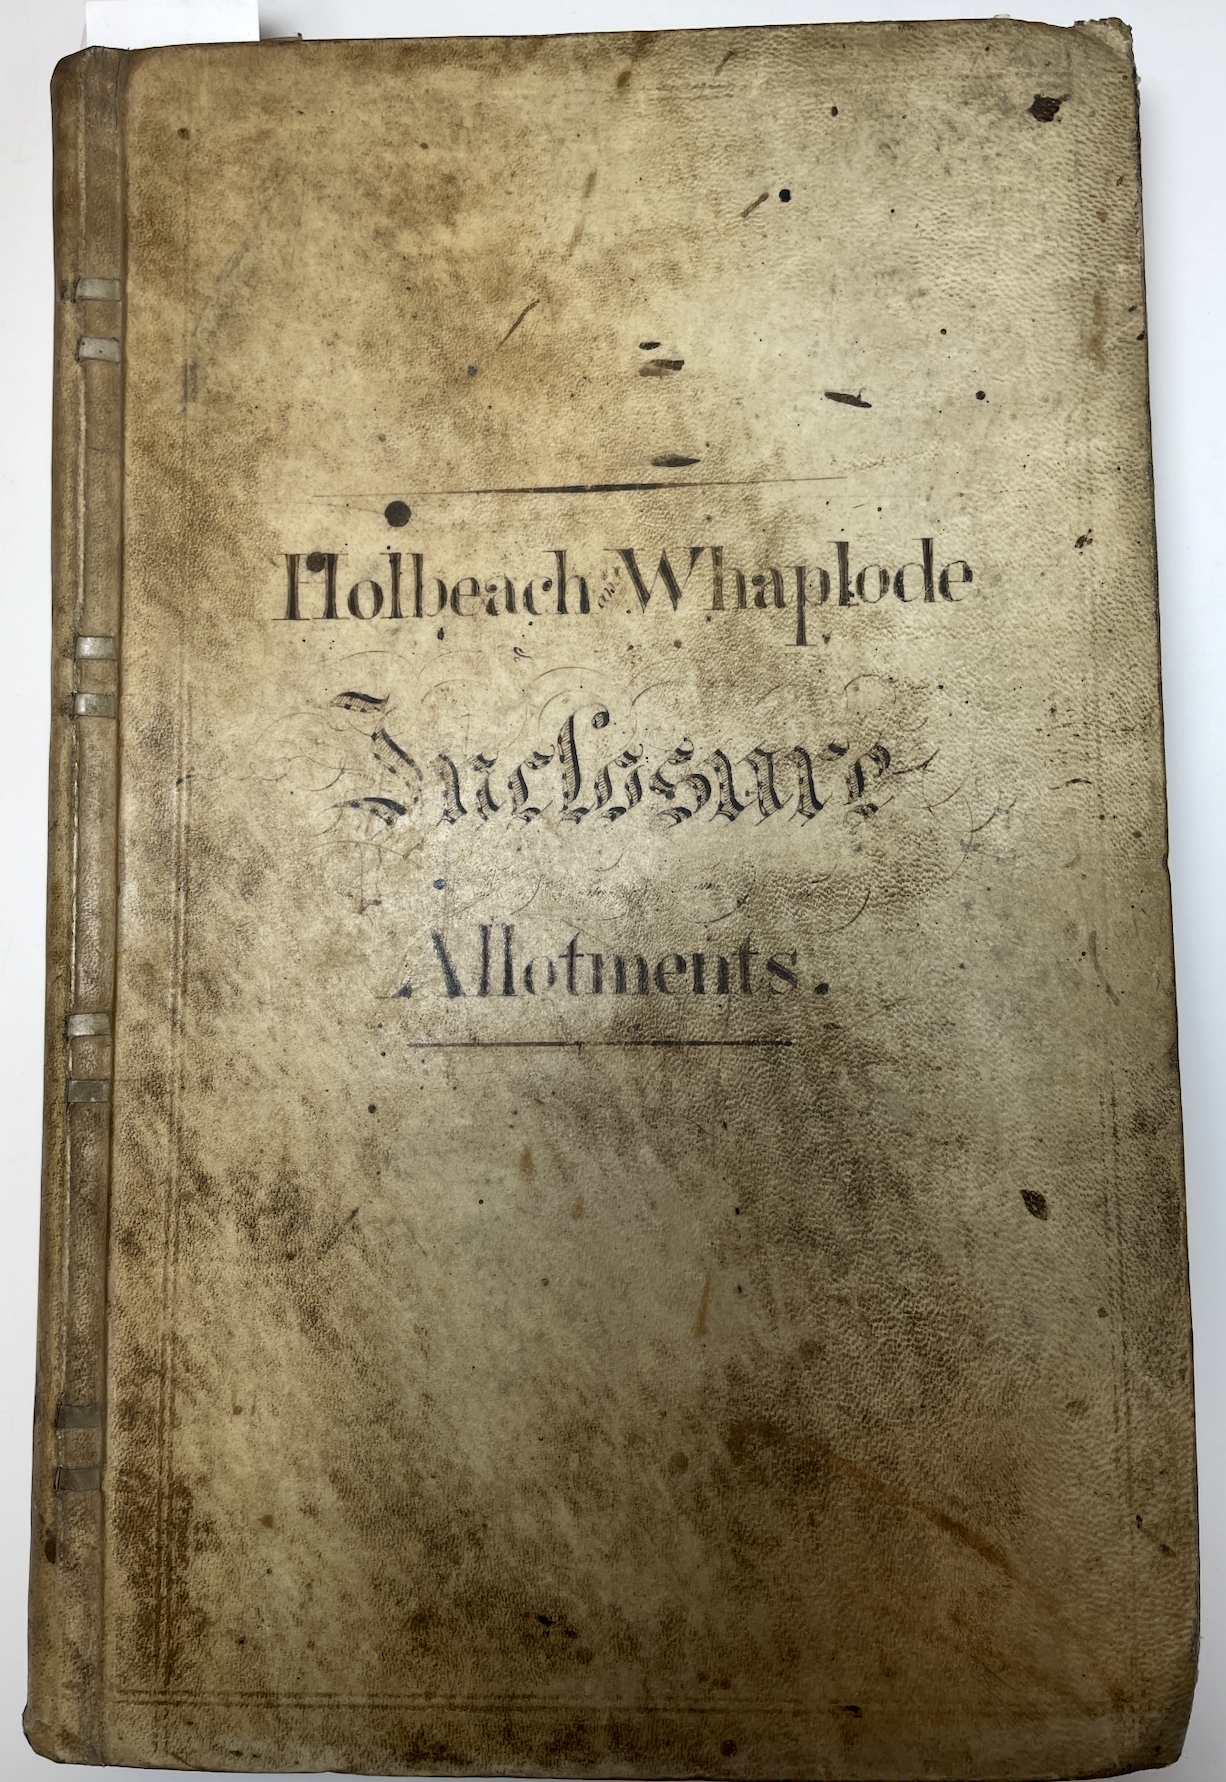 Holbeach and Whaplode
Inclosure
Allotments.